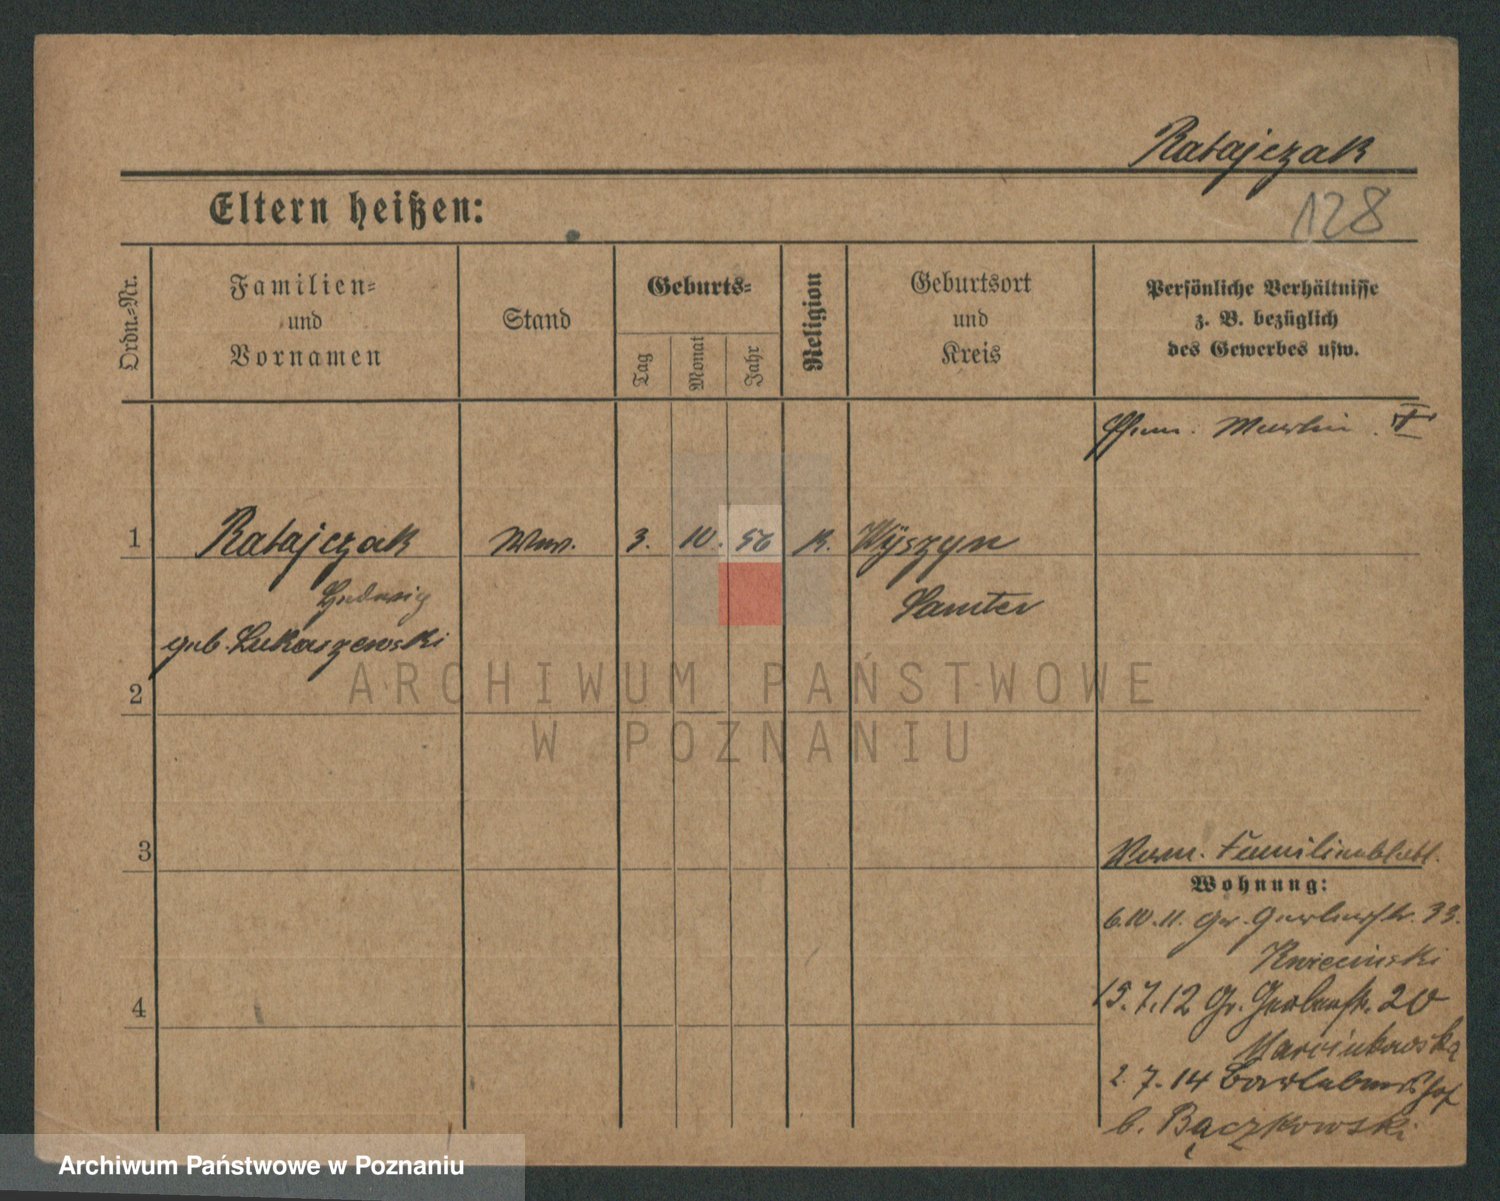 Ratajczak
128
Eltern heißen:
Ordn.-Nr.
Familien-
und
Vornamen
Stand
Geburts-
Tag
Monat
Jahr
Religion
Geburtsort
und
Kreis
Persönliche Verhältnisse
z. B. bezüglich
des Gewerbes usw.
1
Ratajczak
Ww.
3. 10. 56
K.
Wÿszyn
Hedwig
Samter
geb. Lukaszewski
2
ARCHIWUM PAŃSTWOWE
W POZNANIU
3
Vorm. Familienblatt.
Wohnung:
6.10.11. Gr. Gerberstr. 33.
Kwiecinski
4
15.7.12 Gr. Gerberstr. 20
Marcinkowska
2.7.14
b. Bączkowski
Archiwum Państwowe w Poznaniu